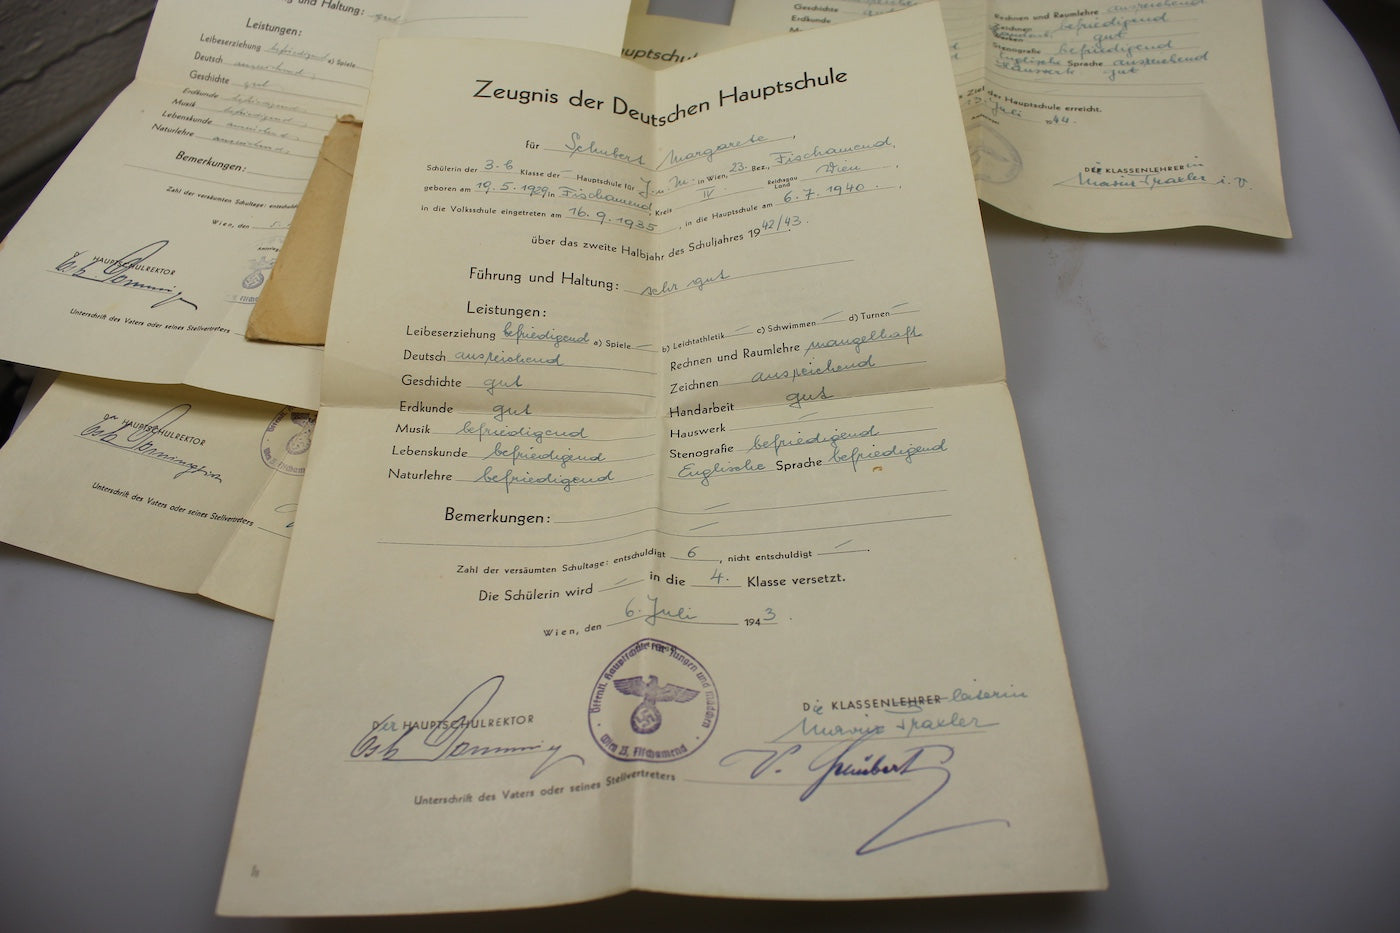 und Haltung: gut
Leistungen:
Leibeserziehung befriedigend a) Spiele
Deutsch ausreichend
Geschichte gut
Erdkunde befriedigend
Musik befriedigend
Lebenskunde ausreichend
Naturlehre ausreichend
Bemerkungen:
Zahl der versäumten Schultage:
Wien, den
HAUPTSCHULREKTOR
Unterschrift des Vaters oder seines Stellvertreters
HAUPTSCHULREKTOR
Unterschrift des Vaters oder seines Stellvertreters
Geschichte
Erdkunde
Rechnen und Raumlehre ausreichend
Zeichnen befriedigend
gut
Stenografie befriedigend
Englische Sprache ausreichend
Hauswerk gut
Ziel der Hauptschule erreicht.
Juli 44.
DIE KLASSENLEHRERin
Maria Traxler i. V.
Zeugnis der Deutschen Hauptschule
für Schubert Margarete,
Schülerin der 3.b Klasse der — Hauptschule für J. u. M. in Wien, 23. Bez., Fischamend,
geboren am 19.5.1929 in Fischamend, Kreis IV Reichsgau Land Wien,
in die Volksschule eingetreten am 16.9.1935, in die Hauptschule am 6.7.1940.
über das zweite Halbjahr des Schuljahres 1942/43.
Führung und Haltung: sehr gut
Leistungen:
Leibeserziehung befriedigend a) Spiele — b) Leichtathletik — c) Schwimmen — d) Turnen —
Deutsch ausreichend Rechnen und Raumlehre mangelhaft
Geschichte gut Zeichnen ausreichend
Erdkunde gut Handarbeit gut
Musik befriedigend Hauswerk —
Lebenskunde befriedigend Stenografie befriedigend
Naturlehre befriedigend Englische Sprache befriedigend
Bemerkungen: —
—
Zahl der versäumten Schultage: entschuldigt 6, nicht entschuldigt —.
Die Schülerin wird — in die 4. Klasse versetzt.
Wien, den 6. Juli 1943.
Der HAUPTSCHULREKTOR
Die KLASSENLEHRER leiterin
Maria Traxler
Öffentl. Hauptschule für Jungen und Mädchen
Wien 23, Fischamend
Unterschrift des Vaters oder seines Stellvertreters V. Schubert